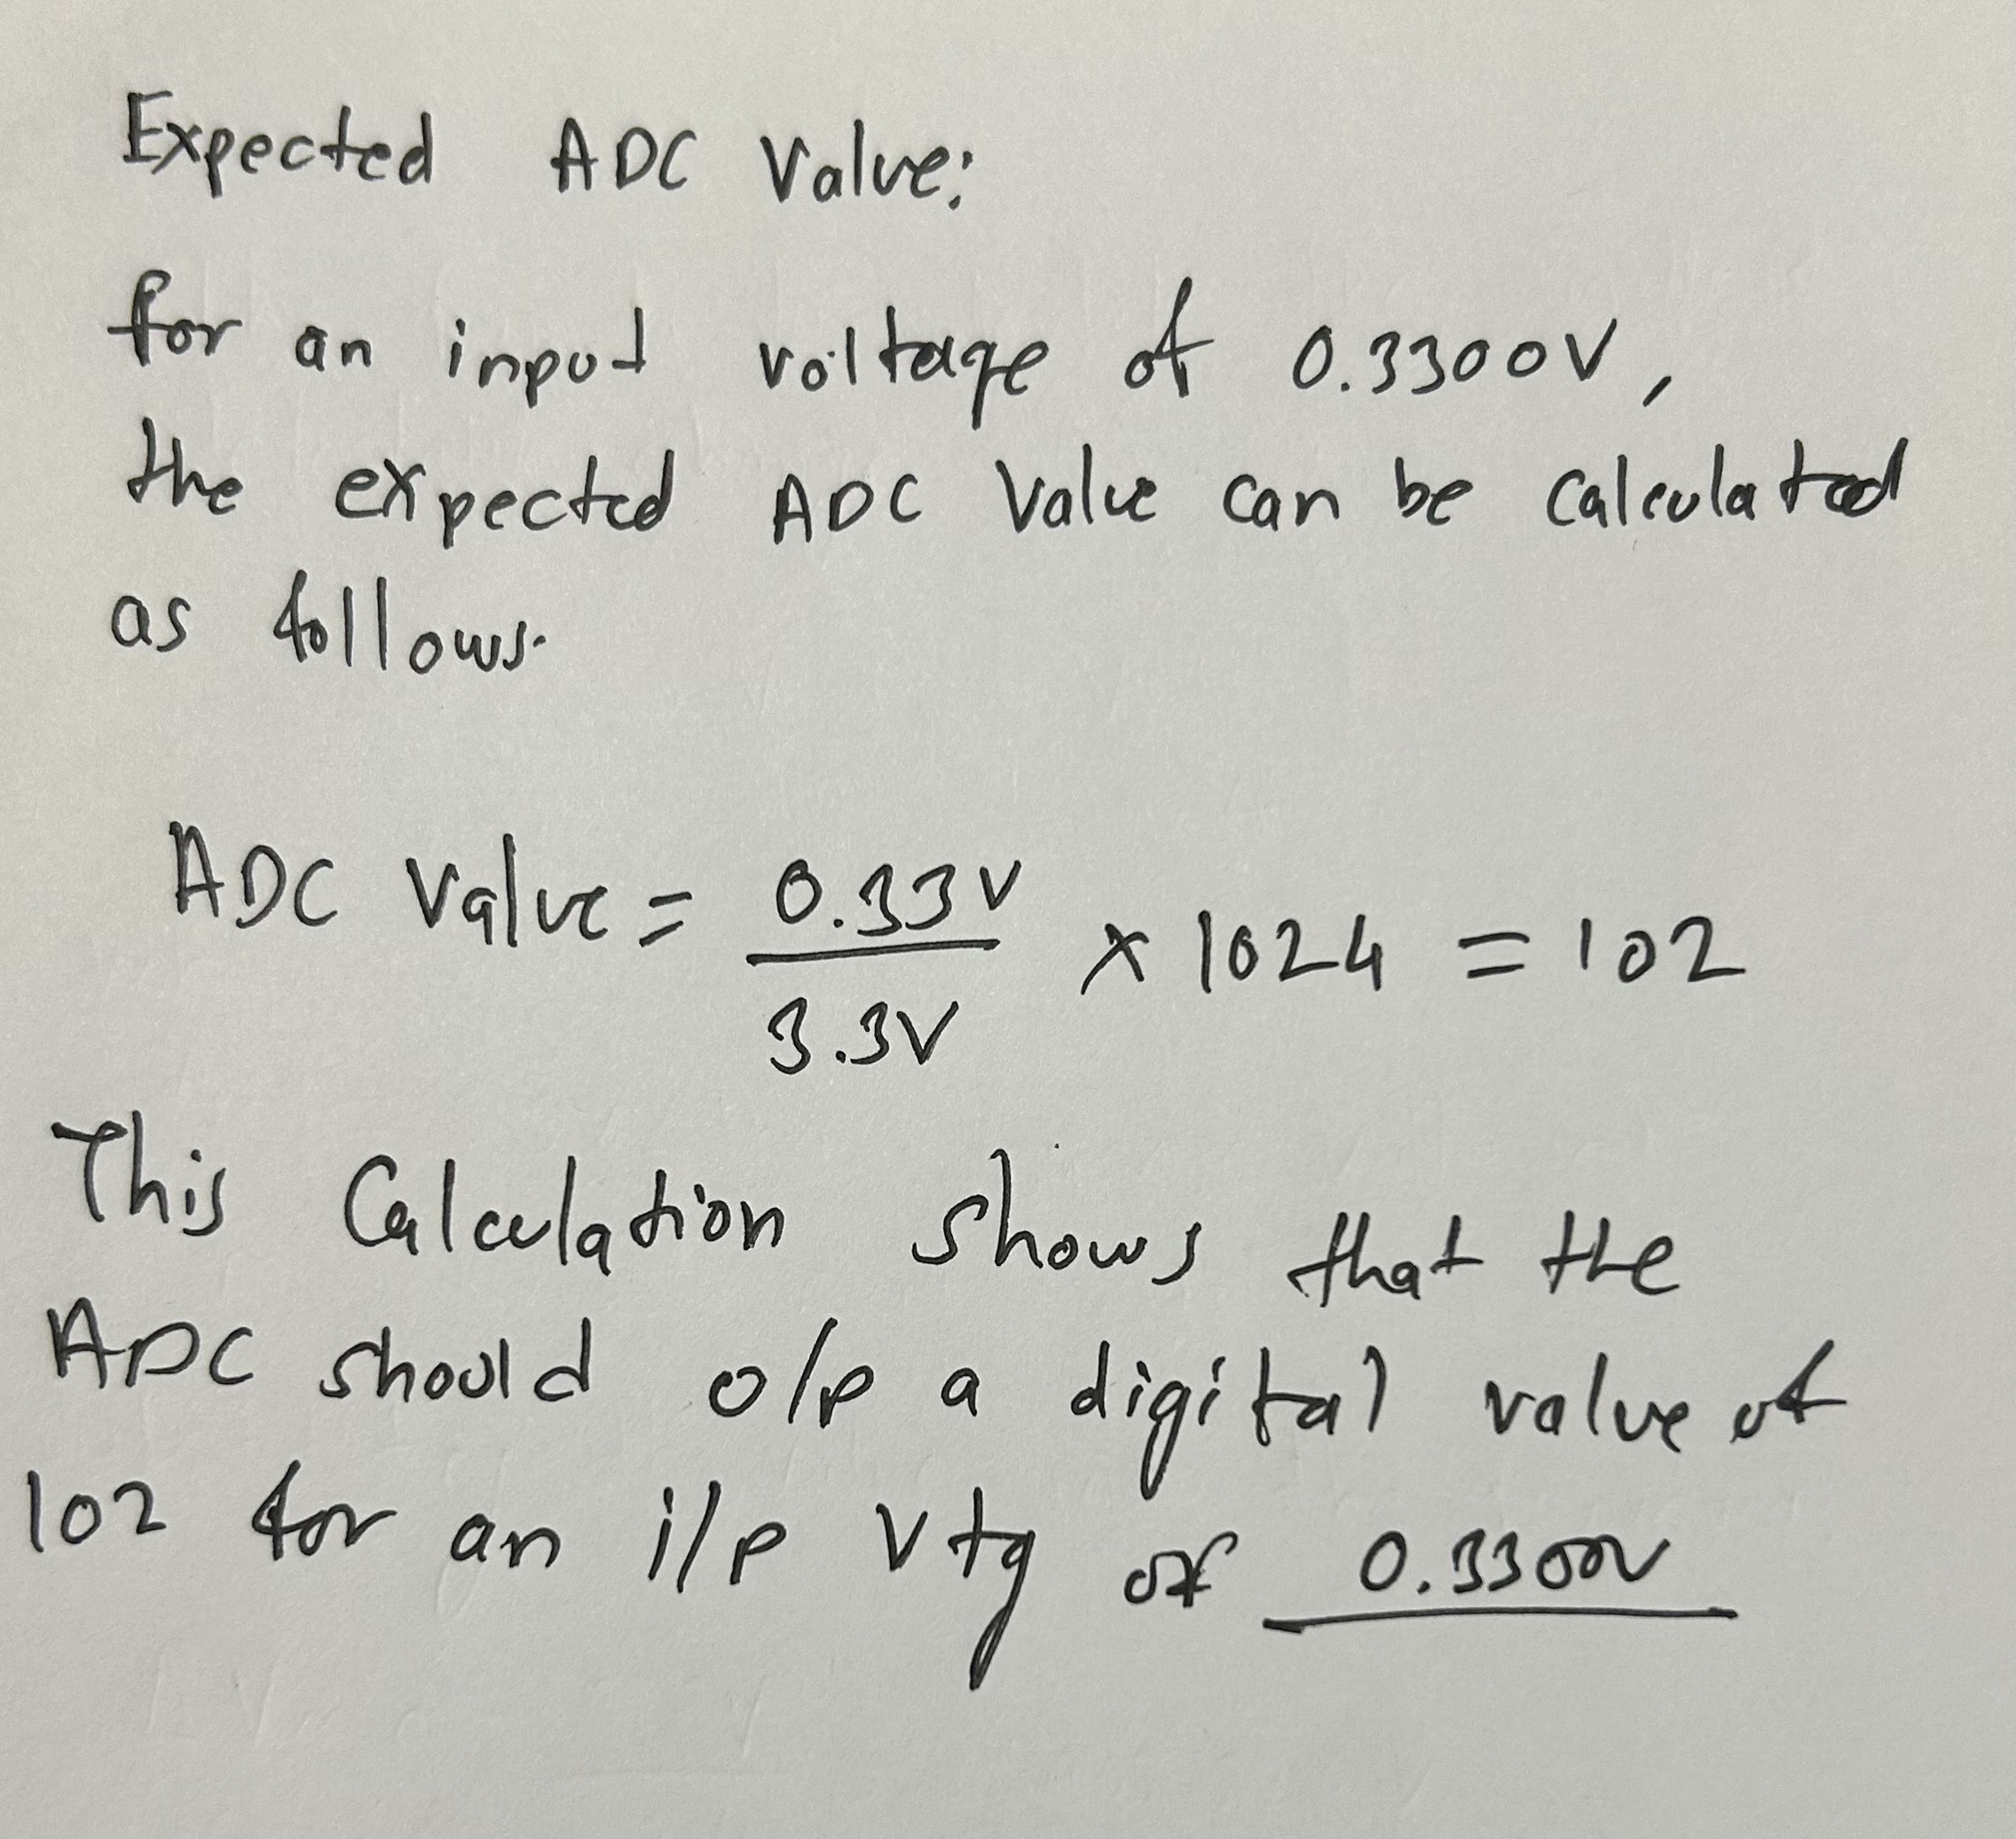 Expected ADC Value:
for an input voltage of 0.3300V,
the expected ADC Value can be calculated
as follows.
ADC Value = 0.33V / 3.3V × 1024 = 102
This Calculation shows that the
ADC should o/p a digital value of
102 for an i/p vtg of 0.3300V